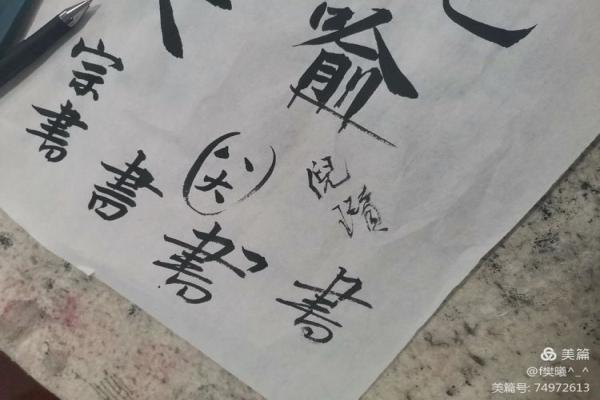 宗書
書
(八大)
書
倪瓚
書
美篇
@f樊曦^_^
美篇号: 74972613